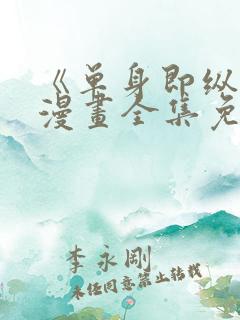 《单身即纵
漫畫全集免
李永剛
未经同意禁止转载